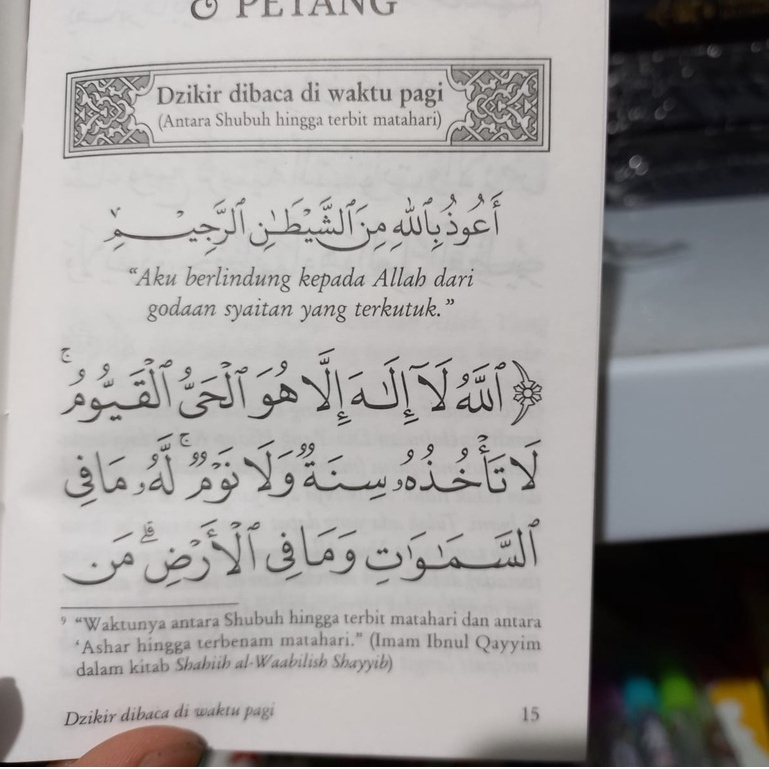 & PETANG
Dzikir dibaca di waktu pagi
(Antara Shubuh hingga terbit matahari)
أَعُوذُ بِٱللَّهِ مِنَ ٱلشَّيْطَـٰنِ ٱلرَّجِيـمِ
“Aku berlindung kepada Allah dari
godaan syaitan yang terkutuk.”
﴿ ٱللَّهُ لَآ إِلَـٰهَ إِلَّا هُوَ ٱلْحَىُّ ٱلْقَيُّومُ ۚ
لَا تَأْخُذُهُۥ سِنَةٌ وَلَا نَوْمٌ ۚ لَّهُۥ مَا فِى
ٱلسَّمَـٰوَٰتِ وَمَا فِى ٱلْأَرْضِ ۗ مَن
⁹ “Waktunya antara Shubuh hingga terbit matahari dan antara
‘Ashar hingga terbenam matahari.” (Imam Ibnul Qayyim
dalam kitab Shahiih al-Waabilish Shayyib)
Dzikir dibaca di waktu pagi 15